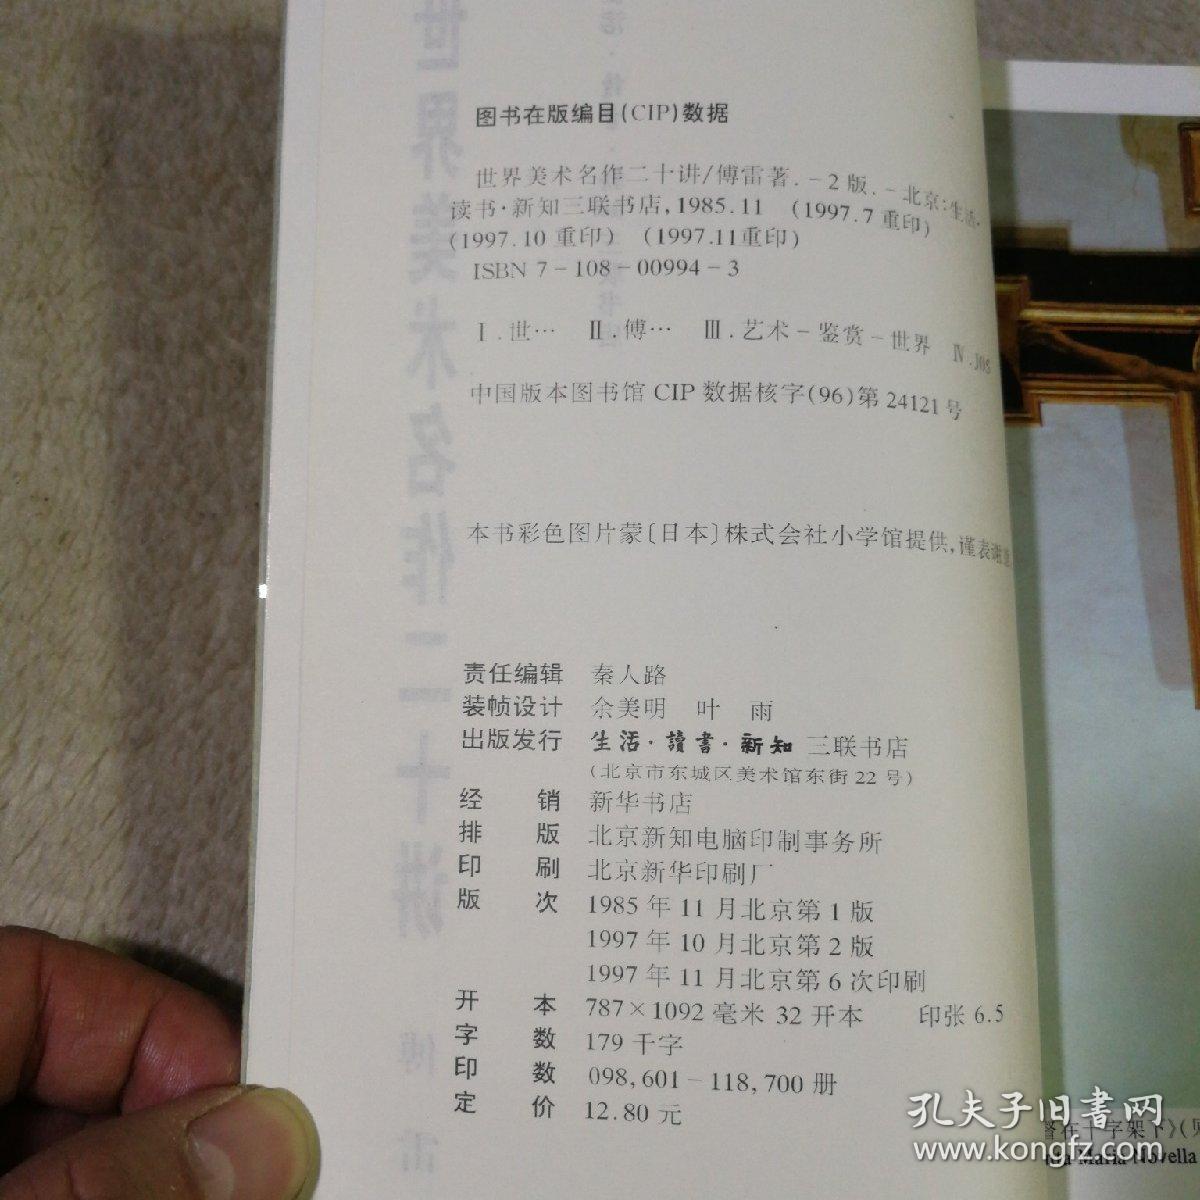 图书在版编目(CIP)数据
世界美术名作二十讲/傅雷著.－2版.－北京:生活·
读书·新知三联书店,1985.11 (1997.7重印)
(1997.10重印) (1997.11重印)
ISBN 7－108－00994－3
Ⅰ.世… Ⅱ.傅… Ⅲ.艺术－鉴赏－世界 Ⅳ.J05
中国版本图书馆CIP数据核字(96)第24121号
本书彩色图片蒙〔日本〕株式会社小学馆提供,谨表谢意
责任编辑 秦人路
装帧设计 余美明 叶 雨
出版发行 生活·讀書·新知 三联书店
(北京市东城区美术馆东街22号)
经 销 新华书店
排 版 北京新知电脑印制事务所
印 刷 北京新华印刷厂
版 次 1985年11月北京第1版
1997年10月北京第2版
1997年11月北京第6次印刷
开 本 787×1092毫米 32开本 印张6.5
字 数 179千字
印 数 098,601－118,700册
定 价 12.80元
世界美术名作二十讲
傅 雷
督在十字架下》(见
Maria Novella
孔夫子旧书网
www.kongfz.com